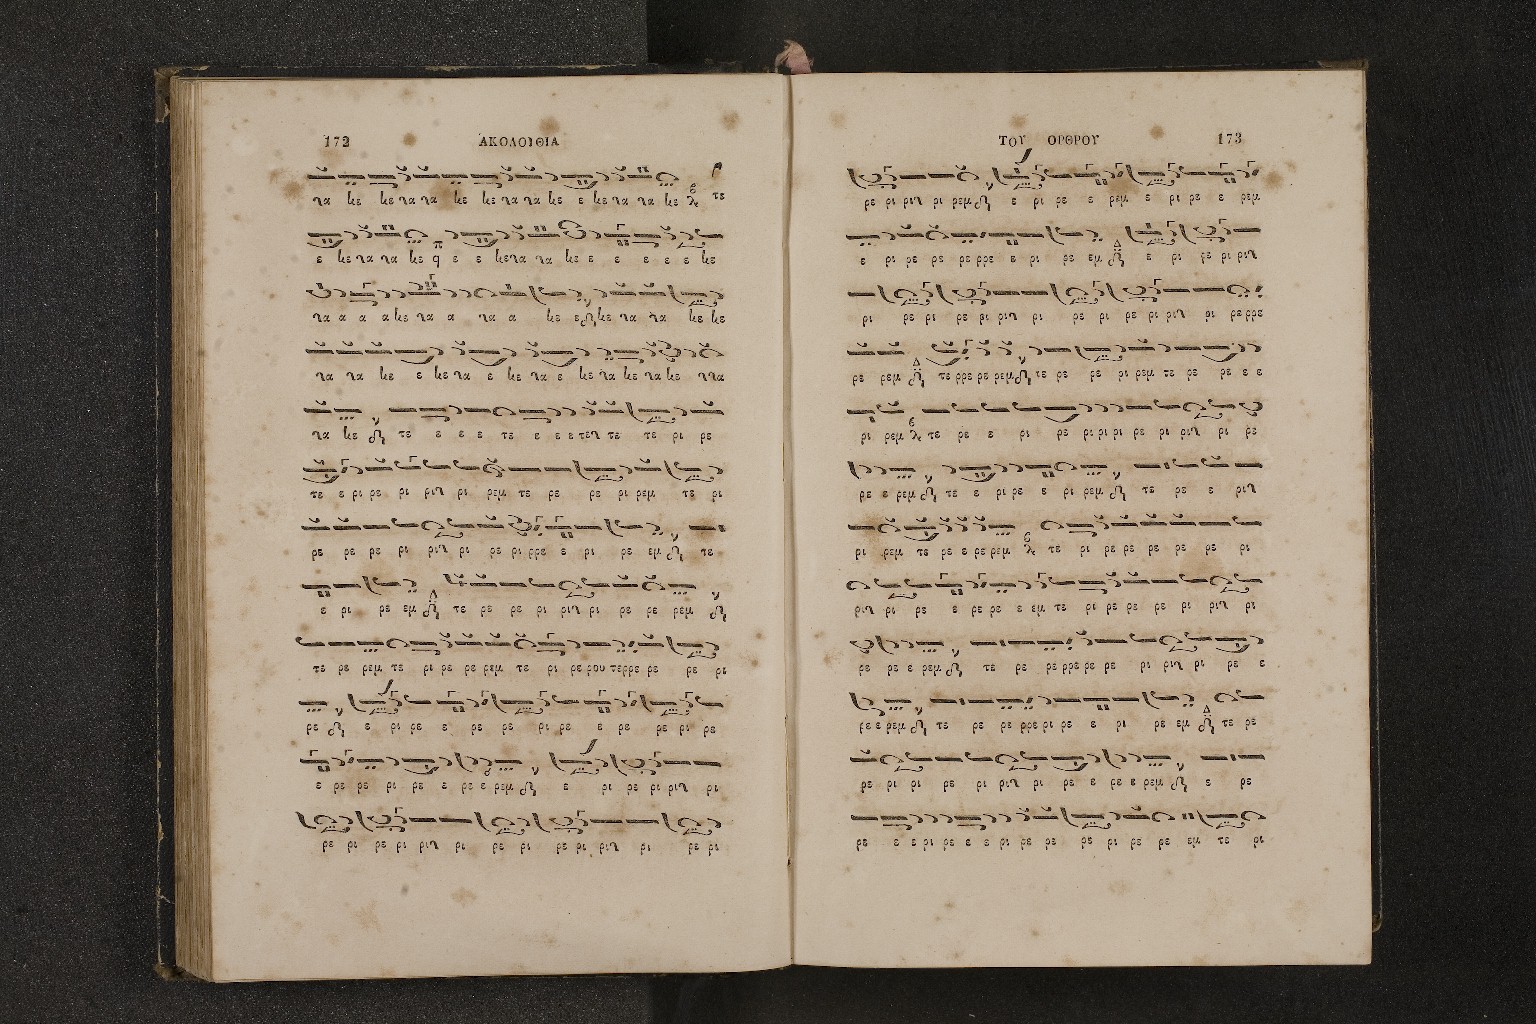 172 ΑΚΟΛΟΥΘΙΑ
να κε κε να να κε κε να να κε ε κε να να κε τε
ε κε να να κε ε ε κε να να κε ε ε ε ε ε κε
να α α α κε να α να α κε ε κε να να κε κε
να να κε ε κε να ε κε να ε κε να κε να κε ννα
να κε τε ε ε ε τε ε ε ε τεν τε τε ρι ρε
τε ε ρι ρε ρι ριν ρι ρεμ τε ρε ρε ρι ρεμ τε ρι
ρε ρε ρε ρι ριν ρι ρε ρι ρρε ε ρι ρε εμ τε
ε ρι ρε εμ τε ρε ρε ρι ριν ρι ρε ρε ρεμ
τε ρε ρεμ τε ρι ρε ρε ρεμ τε ρι ρε ρου τερρε ρε ρε ρι
ρε ε ρι ρε ε ρε ρε ρι ρε ε ρε ρε ρι ρε
ε ρε ρε ρι ρε ε ρε ε ρεμ ε ρι ρε ρι ριν ρι
ρε ρι ρε ρι ριν ρι ρε ρι ρε ρι ριν ρι ρε ρι
ΤΟΥ ΟΡΘΡΟΥ 173
ρε ρι ριν ρι ρεμ ε ρι ρε ε ρεμ ε ρι ρε ε ρεμ
ε ρι ρε ρε ρε ρρε ε ρι ρε εμ ε ρι ρε ρι ριν
ρι ρε ρι ρε ρι ριν ρι ρε ρι ρε ρι ριν ρι ρε ρρε
ρε ρεμ τε ρρε ρε ρεμ τε ρε ρε ρι ρεμ τε ρε ρε ε ε
ρι ρεμ τε ρε ε ρι ρε ρι ρι ρι ρε ρι ριν ρι ρε
ρε ε ρεμ τε ε ρι ρε ε ρι ρεμ τε ρε ε ριν
ρι ρεμ τε ρε ε ρε ρεμ τε ρι ρε ρε ρε ρε ρε ρι
ριν ρι ρε ε ρε ρε ε εμ τε ρι ρε ρε ρε ρι ριν ρι
ρε ρε ε ρεμ τε ρε ρε ρρε ρε ρε ρι ριν ρι ρε ε
ρε ε ρεμ τε ρε ρε ρρε ρι ρε ε ρι ρε εμ τε ρε
ρε ρι ρι ρε ρι ριν ρι ρε ε ρε ε ρεμ ε ρε
ρε ε ε ρι ρε ε ε ρι ρε ρε ρε ρι ρε ρε εμ τε ρι